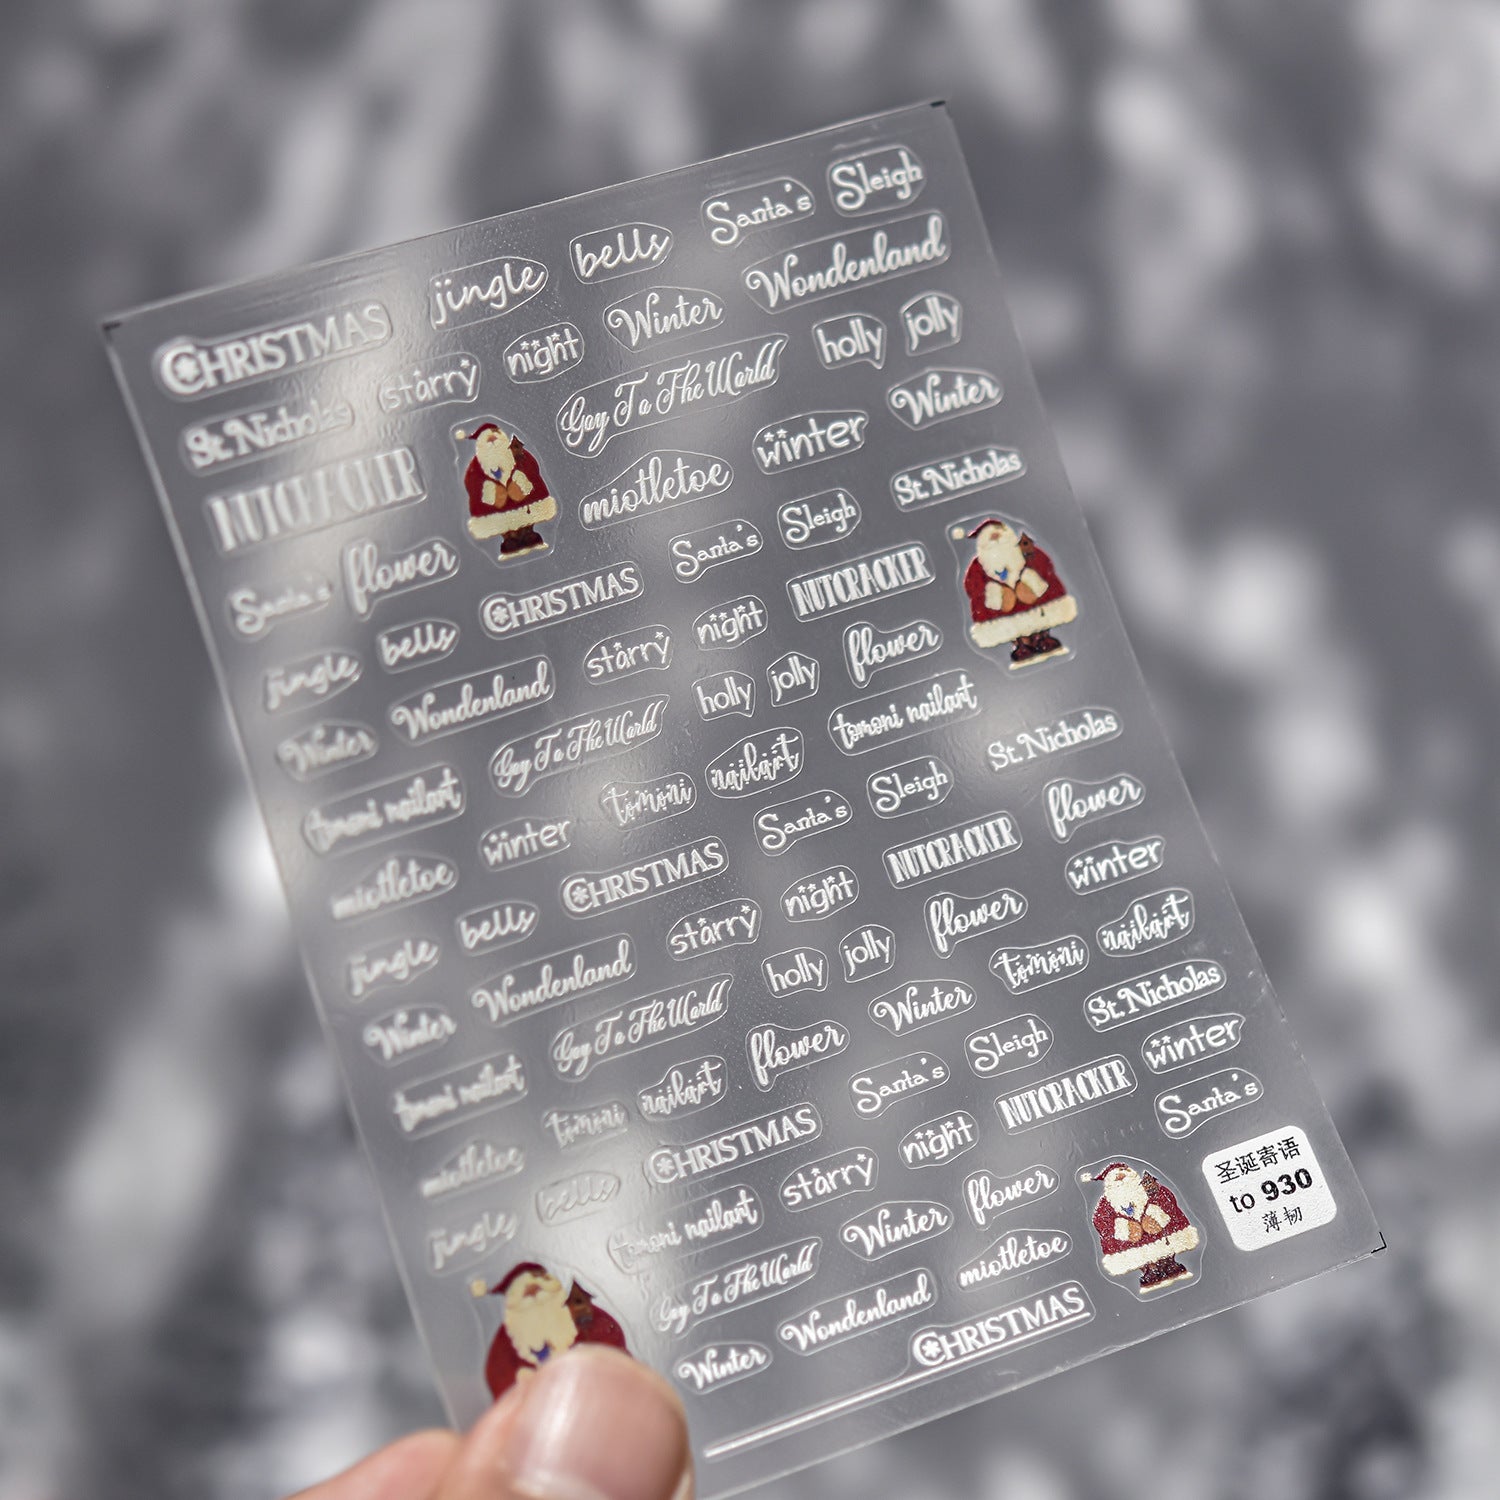 Santa's Sleigh
jingle bells
CHRISTMAS
Winter Wonderland
starry night
holly jolly
St. Nicholas
Gay To The World
Winter
NUTCRACKER
miotletoe
winter
St. Nicholas
Santa's
flower
Santa's Sleigh
CHRISTMAS
NUTCRACKER
jingle bells
starry night
flower
Winter Wonderland
holly jolly
Gay To The World
tomoni nailart
tomoni nailart
St. Nicholas
winter
tomoni nailart
Santa's Sleigh
flower
miotletoe
CHRISTMAS
NUTCRACKER
winter
jingle bells
starry night
flower
Winter Wonderland
holly jolly
tomoni nailart
Gay To The World
Winter
St. Nicholas
tomoni nailart
flower
Sleigh
winter
tomoni nailart
Santa's
NUTCRACKER
Santa's
miotletoe
CHRISTMAS
night
jingle bells
starry
flower
tomoni nailart
Winter
miotletoe
Gay To The World
Wonderland
Winter
CHRISTMAS
圣诞寄语
to 930
薄韧